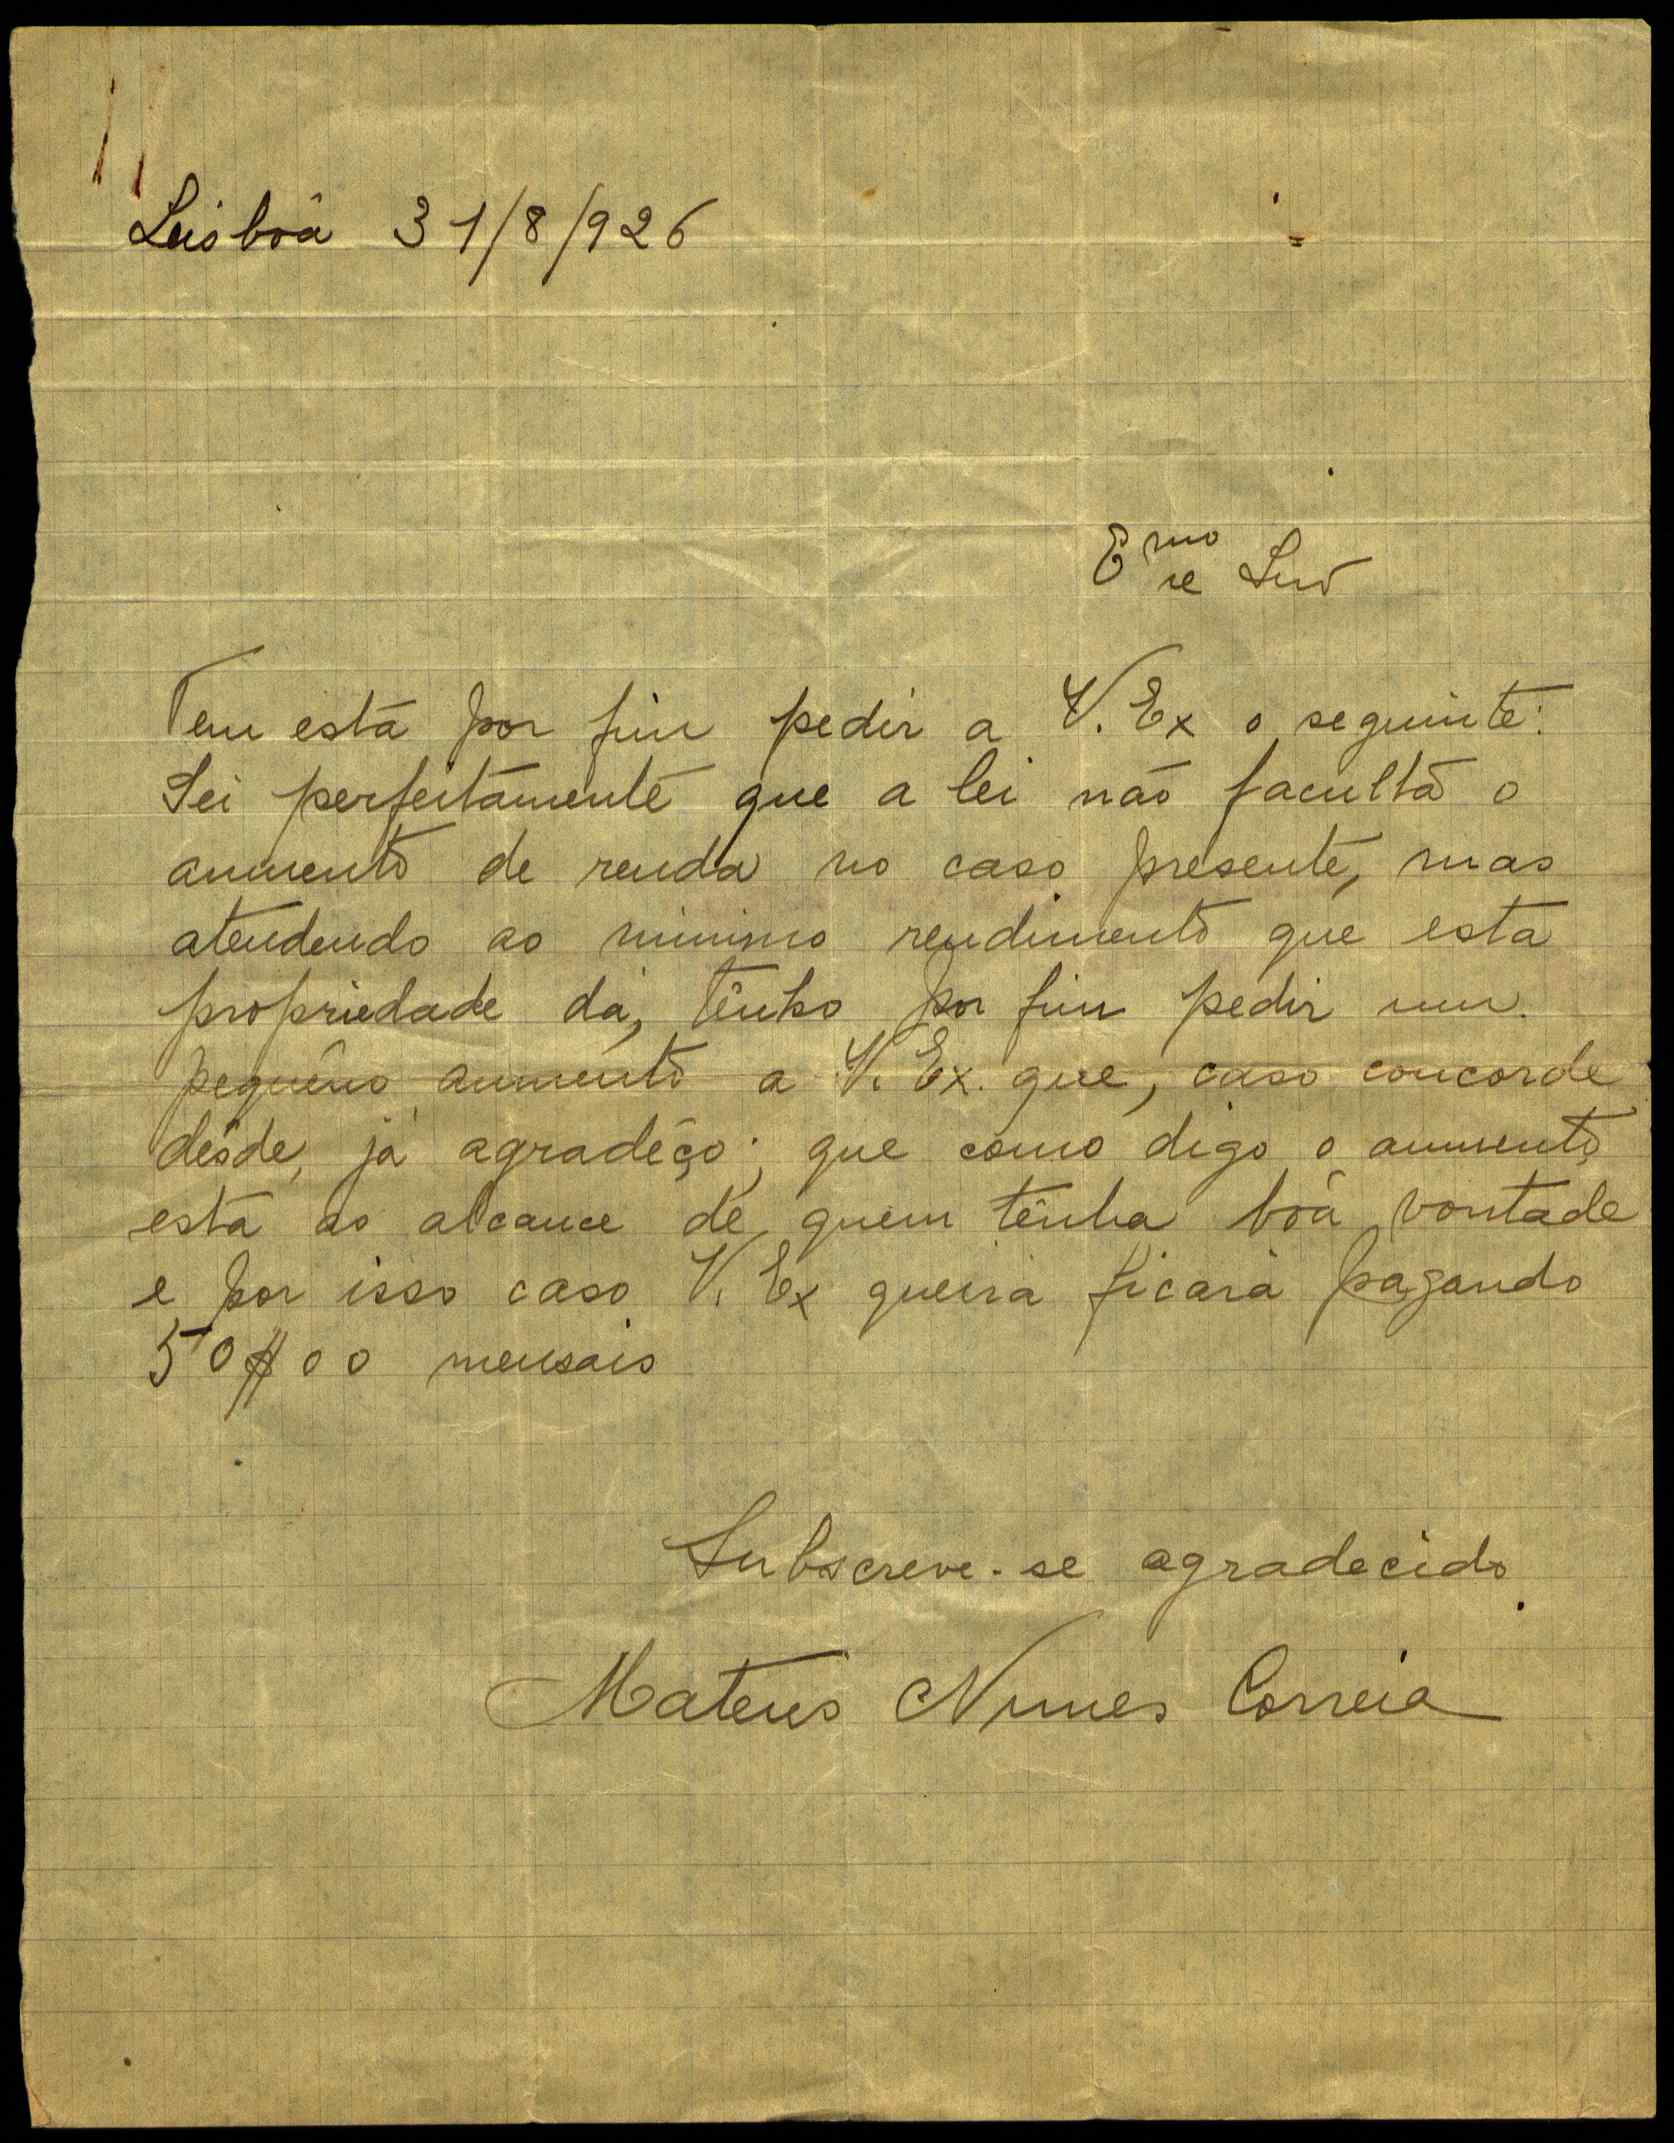 Lisbôa 31/8/926
E mo re Snr
Tem está por fim pedir a V. Ex o seguinte:
Sei perfeitamente que a lei não faculta o
aumento de renda no caso presente, mas
atendendo ao minimo rendimento que esta
propriedade dá, tênho por fim pedir um
pequêno aumento a V. Ex. que, caso concorde
dêsde já agradêço; que como digo o aumento
está ao alcance de quem tênha bôa vontade
e por isso caso V. Ex queira ficará pagando
50$00 mensais
Subscreve-se agradecido
Mateus Nunes Correia